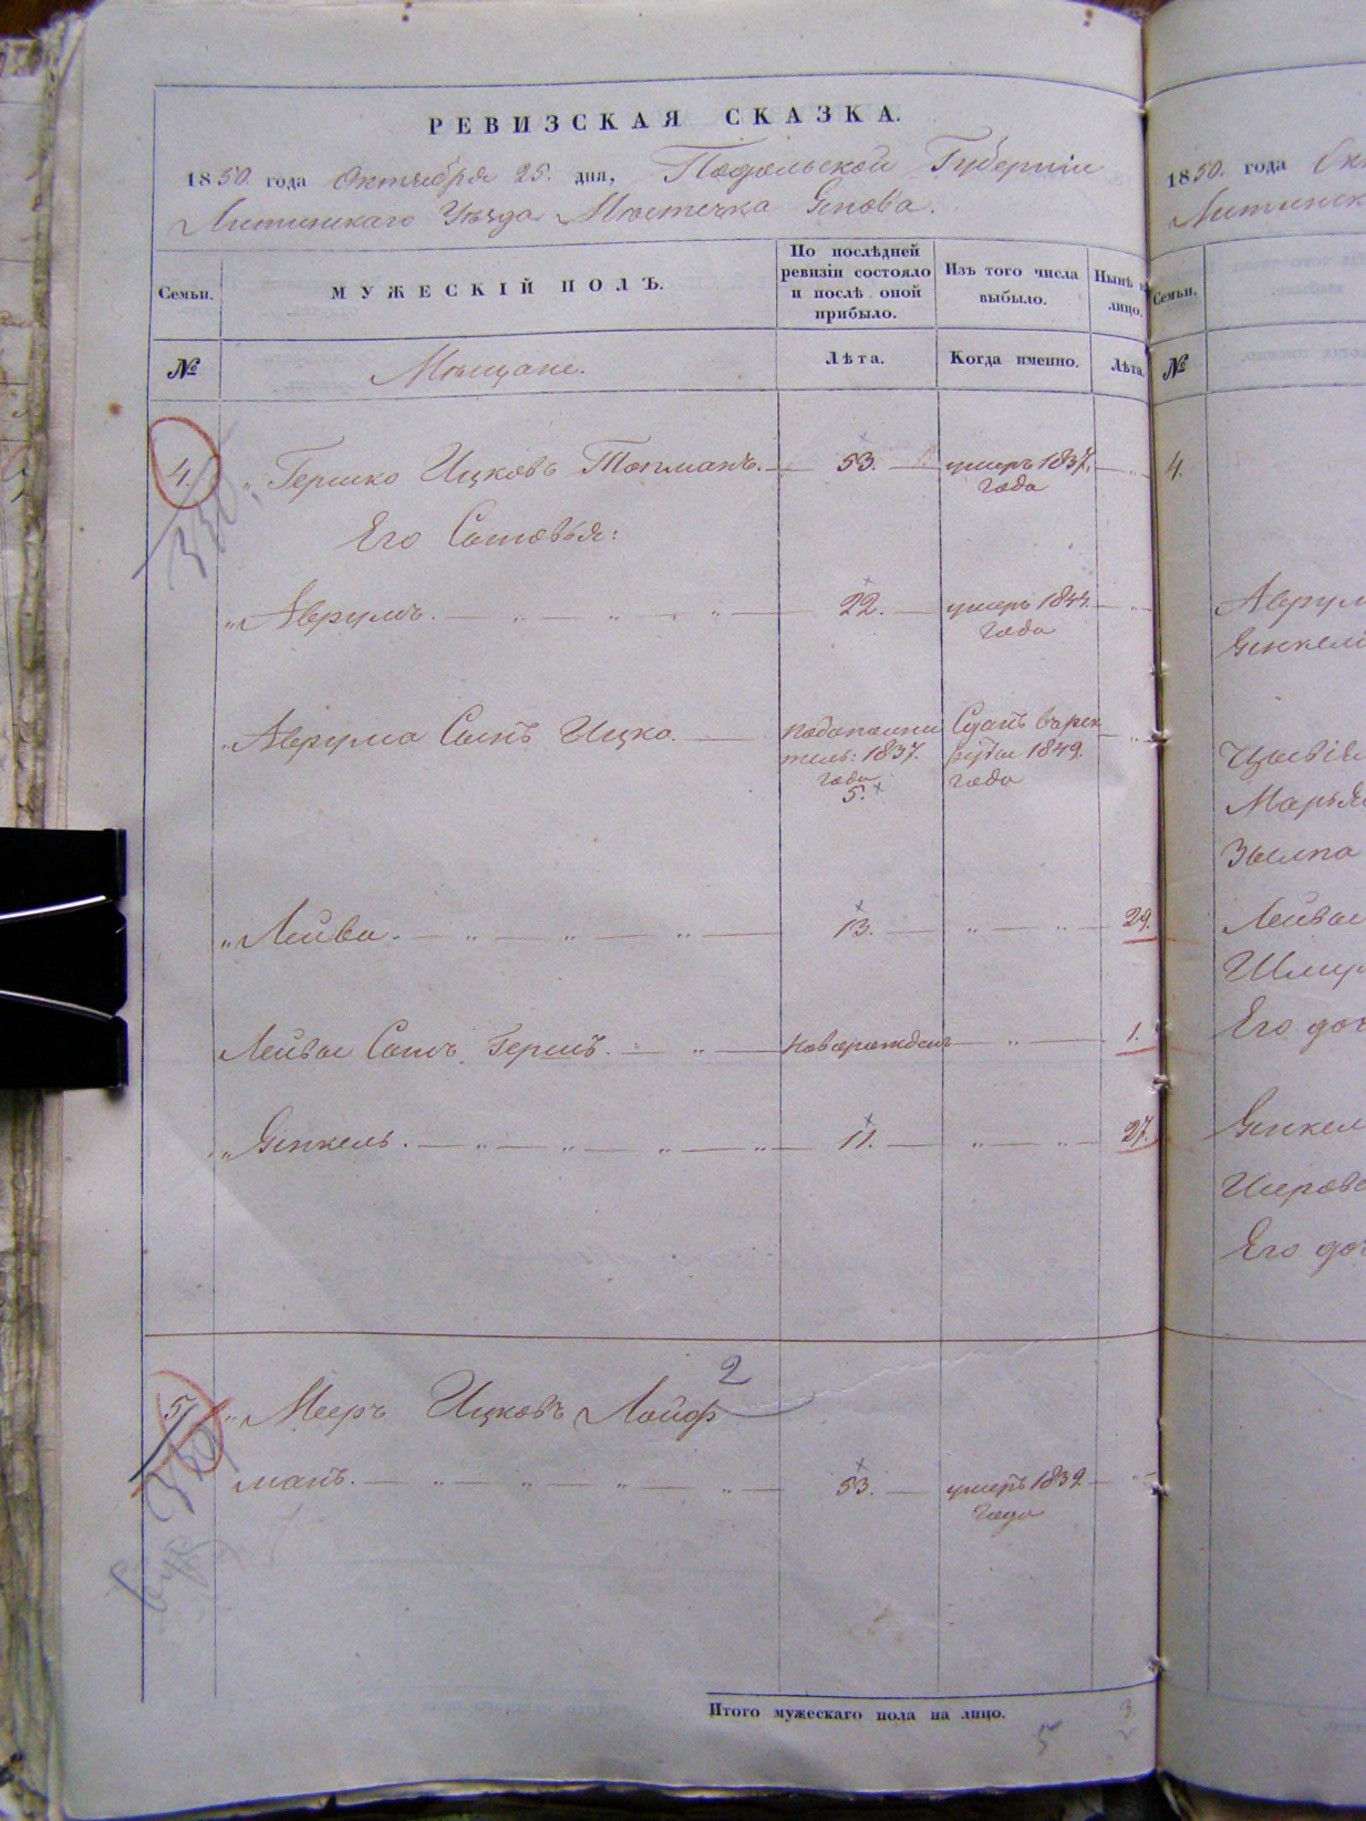 РЕВИЗСКАЯ СКАЗКА.
1850. года Октября 25. дня, Подольской Губерніи
Литинскаго Уѣзда Мѣстечка Янова.
Семьи.
МУЖЕСКІЙ ПОЛЪ.
По послѣдней ревизіи состояло и послѣ оной прибыло.
Изъ того числа выбыло.
Нынѣ на лицо.
№
Мѣщане.
Лѣта.
Когда именно.
Лѣта.
4. „Гершко Ицковъ Топманъ. — 53. — умеръ 1837. — „
года
Его Сыновья:
„Аврумъ. — „ — „ — „ — 22. — умеръ 1844. — „
года
„Аврума Сынъ Ицко. — Сданъ въ рек
тель: 1837. руты 1849. — „
года года
5.
„Лейба. — „ — „ — „ — 13. — „ — „ — 29.
Лейбы Сынъ Гершъ. — „ — новорожденъ — „ — 1.
„Янкель. — „ — „ — „ — „ — 11. — „ — „ — 27.
2
5. „Мееръ Ицковъ Лойф
манъ. — „ — „ — „ — „ — 53. — умеръ 1839. — „
года
Итого мужескаго пола на лицо. 3.
5
1850. года Ок
Литинск
Семьи.
№
4.
Аврум
Янкел
Марья
Лейбы
Его доч
Янкел
Его доч